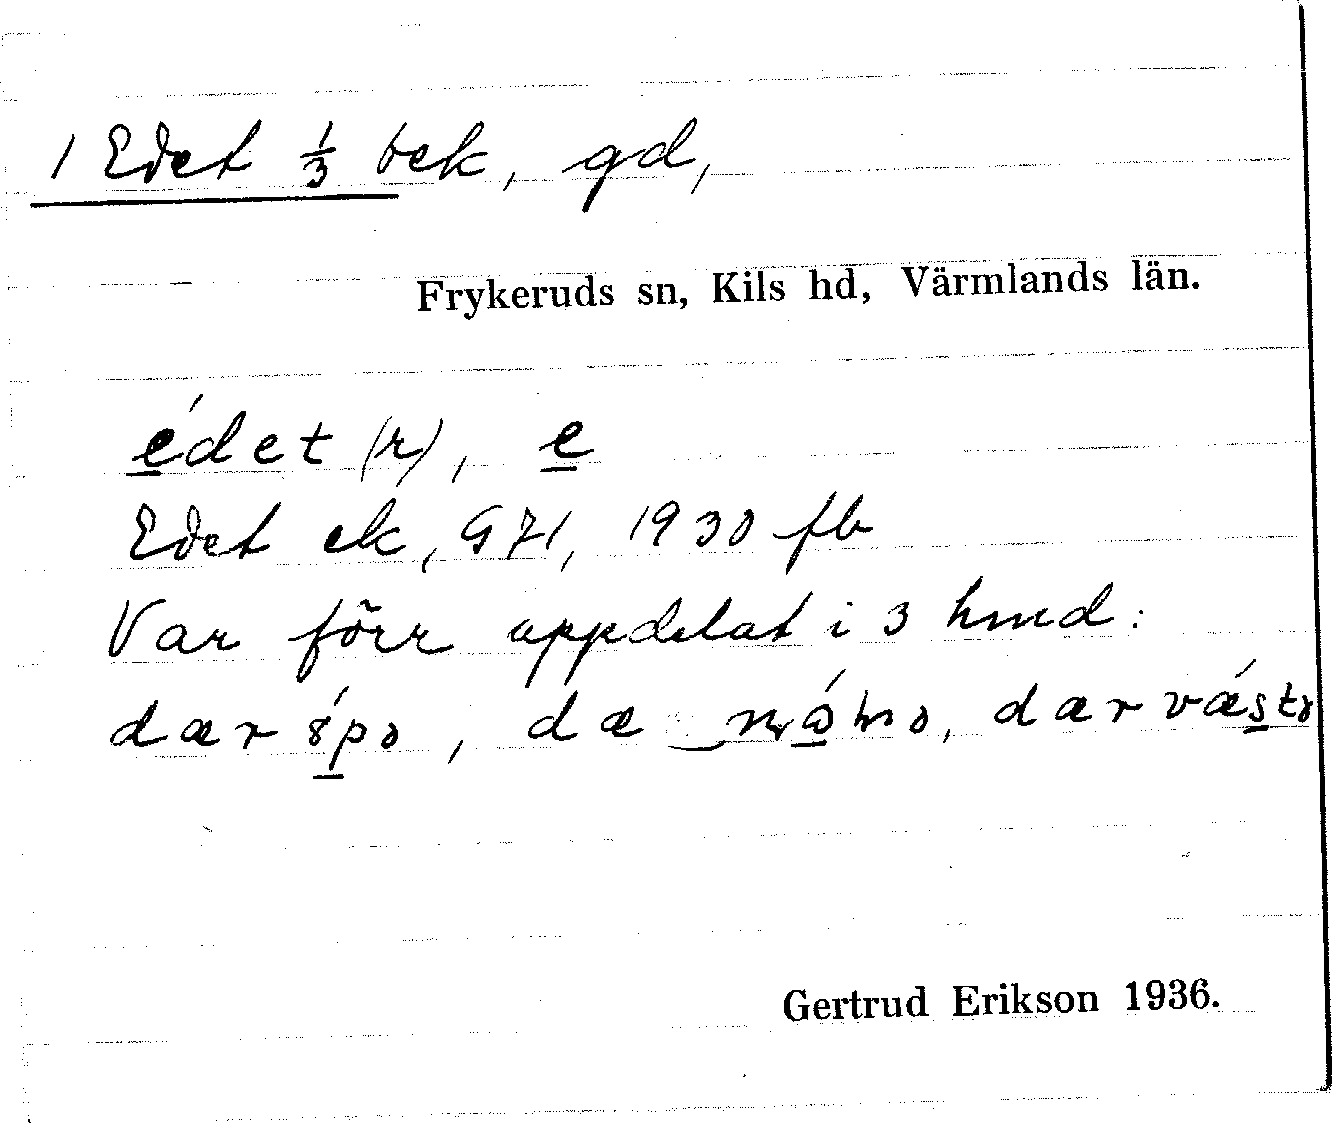 1 Edet 1/3 bek, gd,
Frykeruds sn, Kils hd, Värmlands län.
édet (r), e
Edet ek, G71, 1930 fb
Var förr uppdelat i 3 hmd:
dær, dæ, dær
Gertrud Erikson 1936.